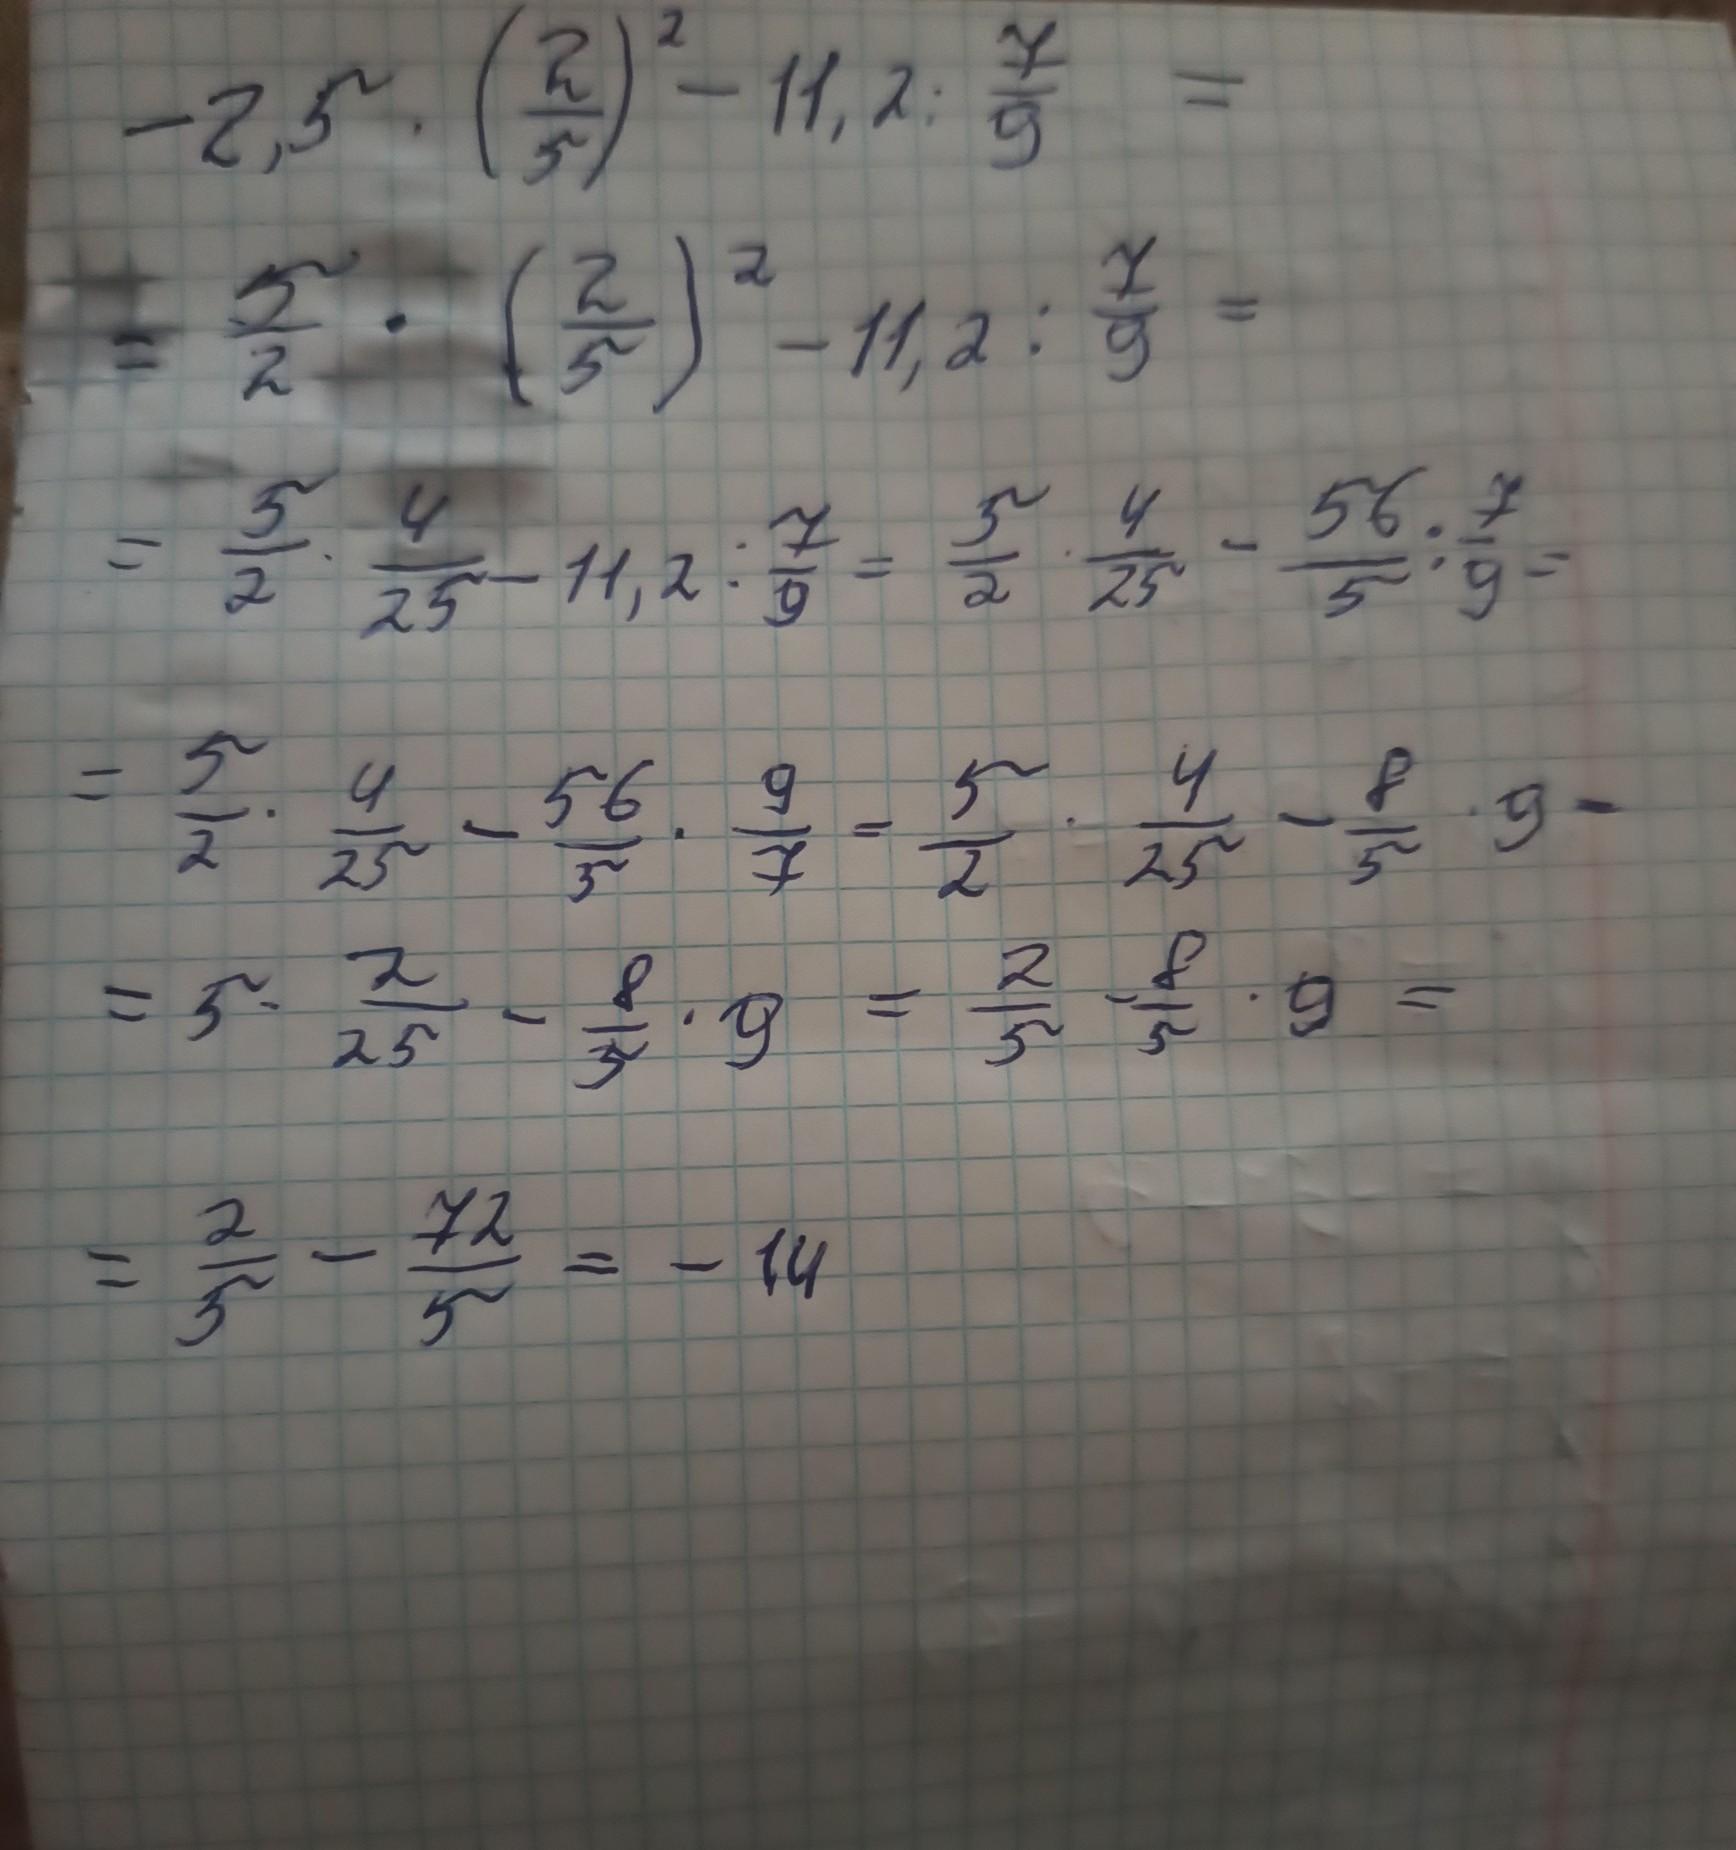 -2,5 · (2/5)² - 11,2 : 7/9 =
= 5/2 · (2/5)² - 11,2 : 7/9 =
= 5/2 · 4/25 - 11,2 : 7/9 = 5/2 · 4/25 - 56/5 : 7/9 =
= 5/2 · 4/25 - 56/5 · 9/7 = 5/2 · 4/25 - 8/5 · 9 -
= 5 · 2/25 - 8/5 · 9 = 2/5 - 8/5 · 9 =
= 2/5 - 72/5 = - 14